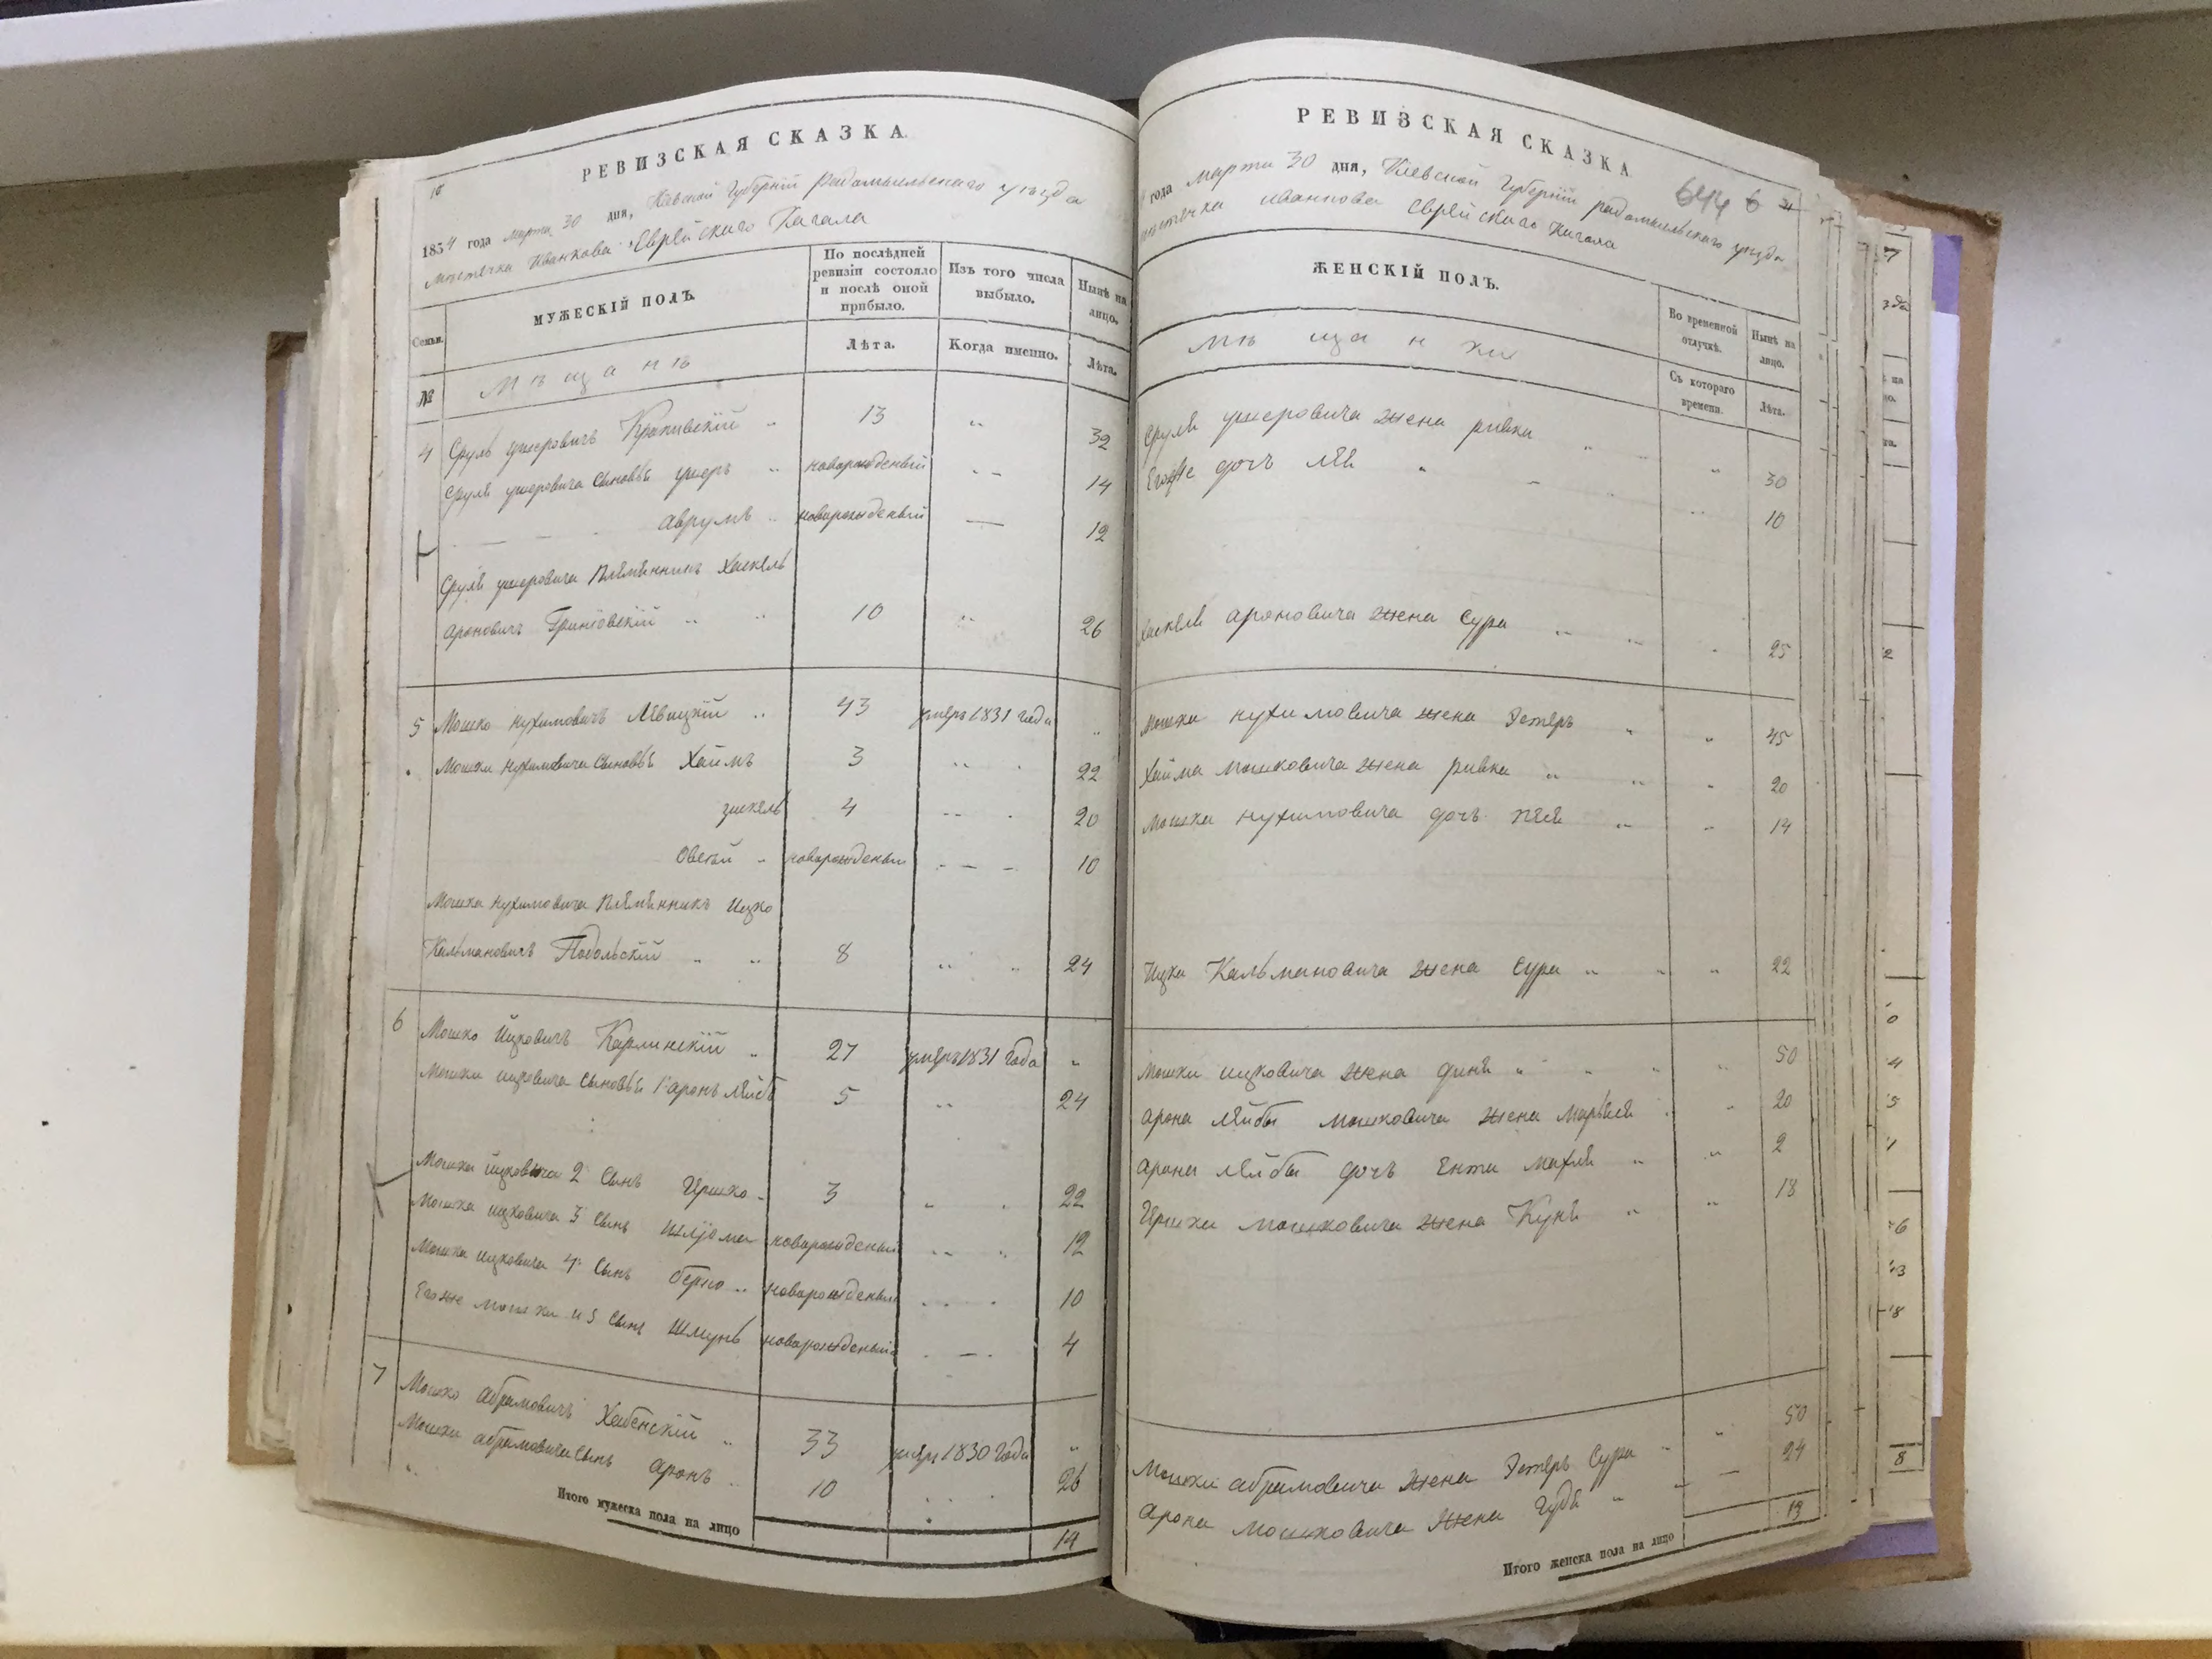 18
РЕВИЗСКАЯ СКАЗКА
1834 года марта 30 дня, Кіевской Губерніи радомысльскаго уѣзда
мѣстечка Иванкова Еврейскаго Кагала
Семьи.
МУЖЕСКІЙ ПОЛЪ.
По послѣдней ревизіи состояло и послѣ оной прибыло.
Изъ того числа выбыло.
Нынѣ на лицо.
№
Мѣщанѣ
Лѣта.
Когда именно.
Лѣта.
4 Сруль ушеровичъ 13 „ 32
Сруля ушеровича сыновья ушеръ „ новорожденый „ 14
аврумъ „ новорожденый — 12
Сруля ушеровича племенникъ Хаскель
ароновичъ „ „ 10 „ 26
5 Мошко нухимовичъ Левицкій „ 43 умеръ 1831 года „
Мошки нухимовича сыновья Хаимъ 3 „ 22
зискель 4 „ 20
Овсѣй „ новорожденый — 10
Мошка нухимовича племенникъ Ицко
Кальмановичъ Подольскій „ „ 8 „ „ 24
6 Мошко Ицковичъ Карлинскій „ 27 умеръ 1831 года „
Мошки ицковича сыновья 1 аронъ лейба 5 „ 24
Мошки ицковича 2 сынъ Гершко „ 3 „ 22
Мошка ицковича 3 сынъ шлiома новорожденый „ „ 12
Мошка ицковича 4 сынъ берко „ новорожденый 10
Егоже мошки и 5 сынъ Шмунь новорожденый — 4
7 Мошко абрамовичъ Хабенскій „ 33 умеръ 1830 года „
Мошки абрамовича сынъ аронъ „ 10 26
Итого мужеска пола на лицо 14
РЕВИЗСКАЯ СКАЗКА
года марта 30 дня, Кіевской Губерніи радомысльскаго уѣзда
мѣстечка иванкова еврейскаго кагала
644 6
ЖЕНСКІЙ ПОЛЪ.
Во временной отлучкѣ.
Нынѣ на лицо.
Мѣщанки
Съ котораго времени.
Лѣта.
Сруля ушеровича жена ривка „ „ 30
Егоже дочь лея „ „ 10
Хаскеля ароновича жена Сура „ „ 25
Мошки нухимовича жена Эстеръ „ „ 45
Хаима мошковича жена ривка „ „ 20
Мошки нухимовича дочь пея „ „ 14
Ицка Кальмановича жена Сура „ „ „ 22
Мошки ицковича жена диня „ „ „ 50
арона лейбы мошковича жена марьяся „ 20
арона лейбы дочь Ента махля „ „ 2
Гершки мошковича жена Куня „ „ 18
Мошки абрамовича жена Эстеръ Сура „ „ 50
арона мошковича жена Гудя „ — 24
Итого женска пола на лицо 13